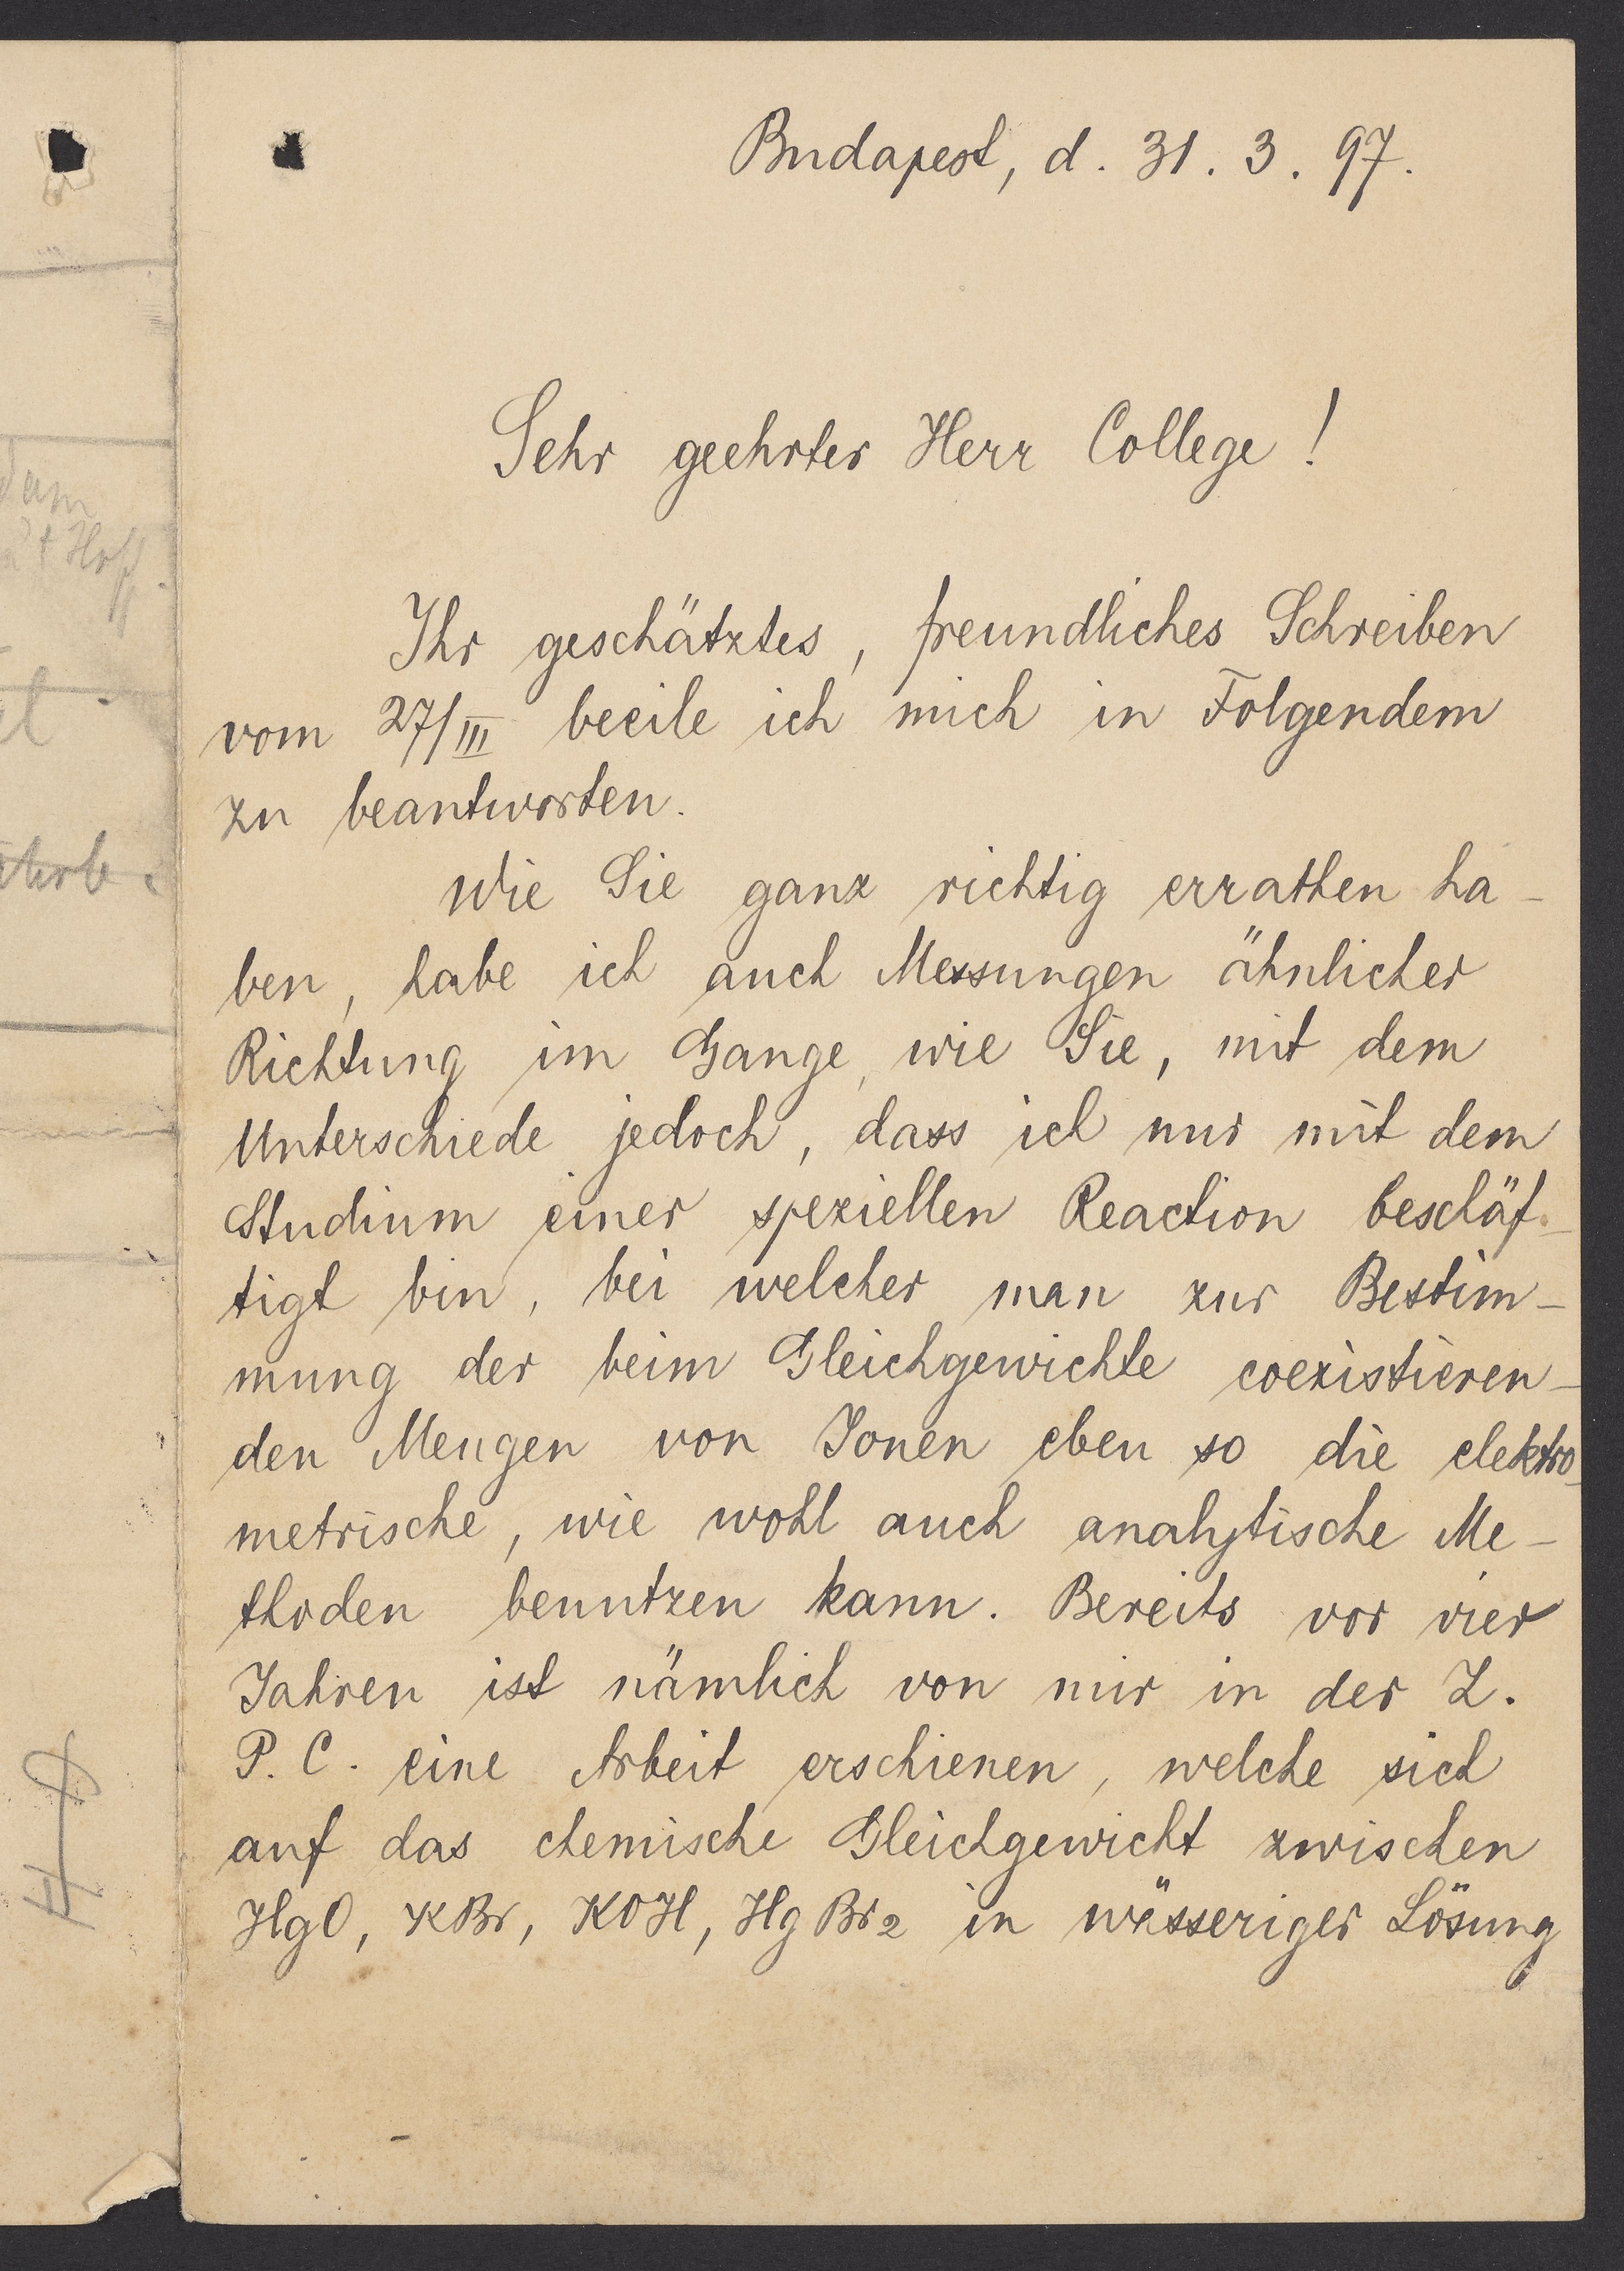 Budapest, d. 31. 3. 97.
Sehr geehrter Herr College!
Ihr geschätztes, freundliches Schreiben
vom 27/III beeile ich mich in Folgendem
zu beantworten.
Wie Sie ganz richtig errathen ha-
ben, habe ich auch Messungen ähnlicher
Richtung im Gange, wie Sie, mit dem
Unterschiede jedoch, dass ich nur mit dem
Studium einer speziellen Reaction beschäf-
tigt bin, bei welcher man zur Bestim-
mung der beim Gleichgewichte coexistieren-
den Mengen von Ionen eben so die elektro-
metrische, wie wohl auch analytische Me-
thoden benutzen kann. Bereits vor vier
Jahren ist nämlich von mir in der Z.
P. C. eine Arbeit erschienen, welche sich
auf das chemische Gleichgewicht zwischen
HgO, KBr, KOH, HgBr2 in wässeriger Lösung
dam
't Hoff